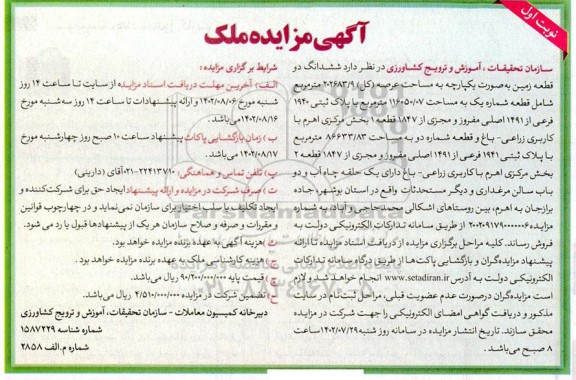 نوبت اول
آگهی مزایده ملک
سازمان تحقیقات، آموزش و ترویج کشاورزی در نظر دارد ششدانگ دو
قطعه زمین به‌صورت یکپارچه به مساحت عرصه (کل) ۲۰۲۶۸۳/۹ مترمربع
شامل قطعه شماره یک به مساحت ۱۱۶۰۵۰/۰۷ مترمربع با پلاک ثبتی ۱۹۴۰
فرعی از ۱۴۹۱ اصلی مفروز و مجزی از ۱۸۴۷ قطعه ۱ بخش مرکزی اهرم با
کاربری زراعی- باغ و قطعه شماره دو به مساحت ۸۶۶۳۳/۸۳ مترمربع
با پلاک ثبتی ۱۹۴۱ فرعی از ۱۴۹۱ اصلی مفروز و مجزی از ۱۸۴۷ قطعه ۲
بخش مرکزی اهرم با کاربری زراعی- باغ دارای یک حلقه چاه آب و دو
باب سالن مرغداری و دیگر مستحدثات واقع در استان بوشهر، جاده
برازجان به اهرم، بین روستاهای اشکالی محمدحاجی و آباد، به شماره
مزایده از طریق سامانه تدارکات الکترونیکی دولت به
فروش رساند. کلیه مراحل برگزاری مزایده از دریافت اسناد مزایده تا ارائه
پیشنهاد مزایده‌گران و بازگشایی پاکت‌ها از طریق درگاه سامانه تدارکات
الکترونیکی دولت به آدرس www.setadiran.ir انجام خواهد شد و لازم
است مزایده‌گران درصورت عدم عضویت قبلی، مراحل ثبت‌نام در سایت
مذکور و دریافت گواهی امضای الکترونیکی را جهت شرکت در مزایده
محقق سازند. تاریخ انتشار مزایده در سامانه روز شنبه ۱۴۰۲/۰۷/۲۹ ساعت
۸ صبح می‌باشد.
شرایط برگزاری مزایده:
الف) آخرین مهلت دریافت اسناد مزایده از سایت تا ساعت ۱۴ روز
شنبه مورخ ۱۴۰۲/۰۸/۰۶ و ارائه پیشنهادات تا ساعت ۱۴ روز سه‌شنبه مورخ
۱۴۰۲/۰۸/۱۶ می‌باشد.
ب) زمان بازگشایی پاکات پیشنهاد ساعت ۱۰ صبح روز چهارشنبه مورخ
۱۴۰۲/۰۸/۱۷ می‌باشد.
پ) تلفن تماس و هماهنگی: ۲۲۴۱۳۷۱۰-۰۲۱ آقای (دارینی)
ت) صرف شرکت در مزایده و ارائه پیشنهاد ایجاد حق برای شرکت‌کننده و
ایجاد تکلیف یا سلب اختیار برای سازمان نمی‌نماید و در چهارچوب قوانین
و مقررات و صرفه و صلاح سازمان هر یک از پیشنهادها قبول یا رد می شود.
ث) هزینه آگهی به عهده برنده مزایده خواهد بود.
ج) هزینه کارشناسی ملک به عهده برنده مزایده خواهد بود.
چ) قیمت پایه ۹۰/۲۰۰/۰۰۰/۰۰۰ ریال می‌باشد.
ل) تضمین شرکت در مزایده ۴/۵۱۰/۰۰۰/۰۰۰ ریال می‌باشد.
دبیرخانه کمیسیون معاملات - سازمان تحقیقات، آموزش و ترویج کشاورزی
شماره شناسه ۱۵۸۷۲۲۹
شماره م.الف ۲۸۵۸
ParsNamadData